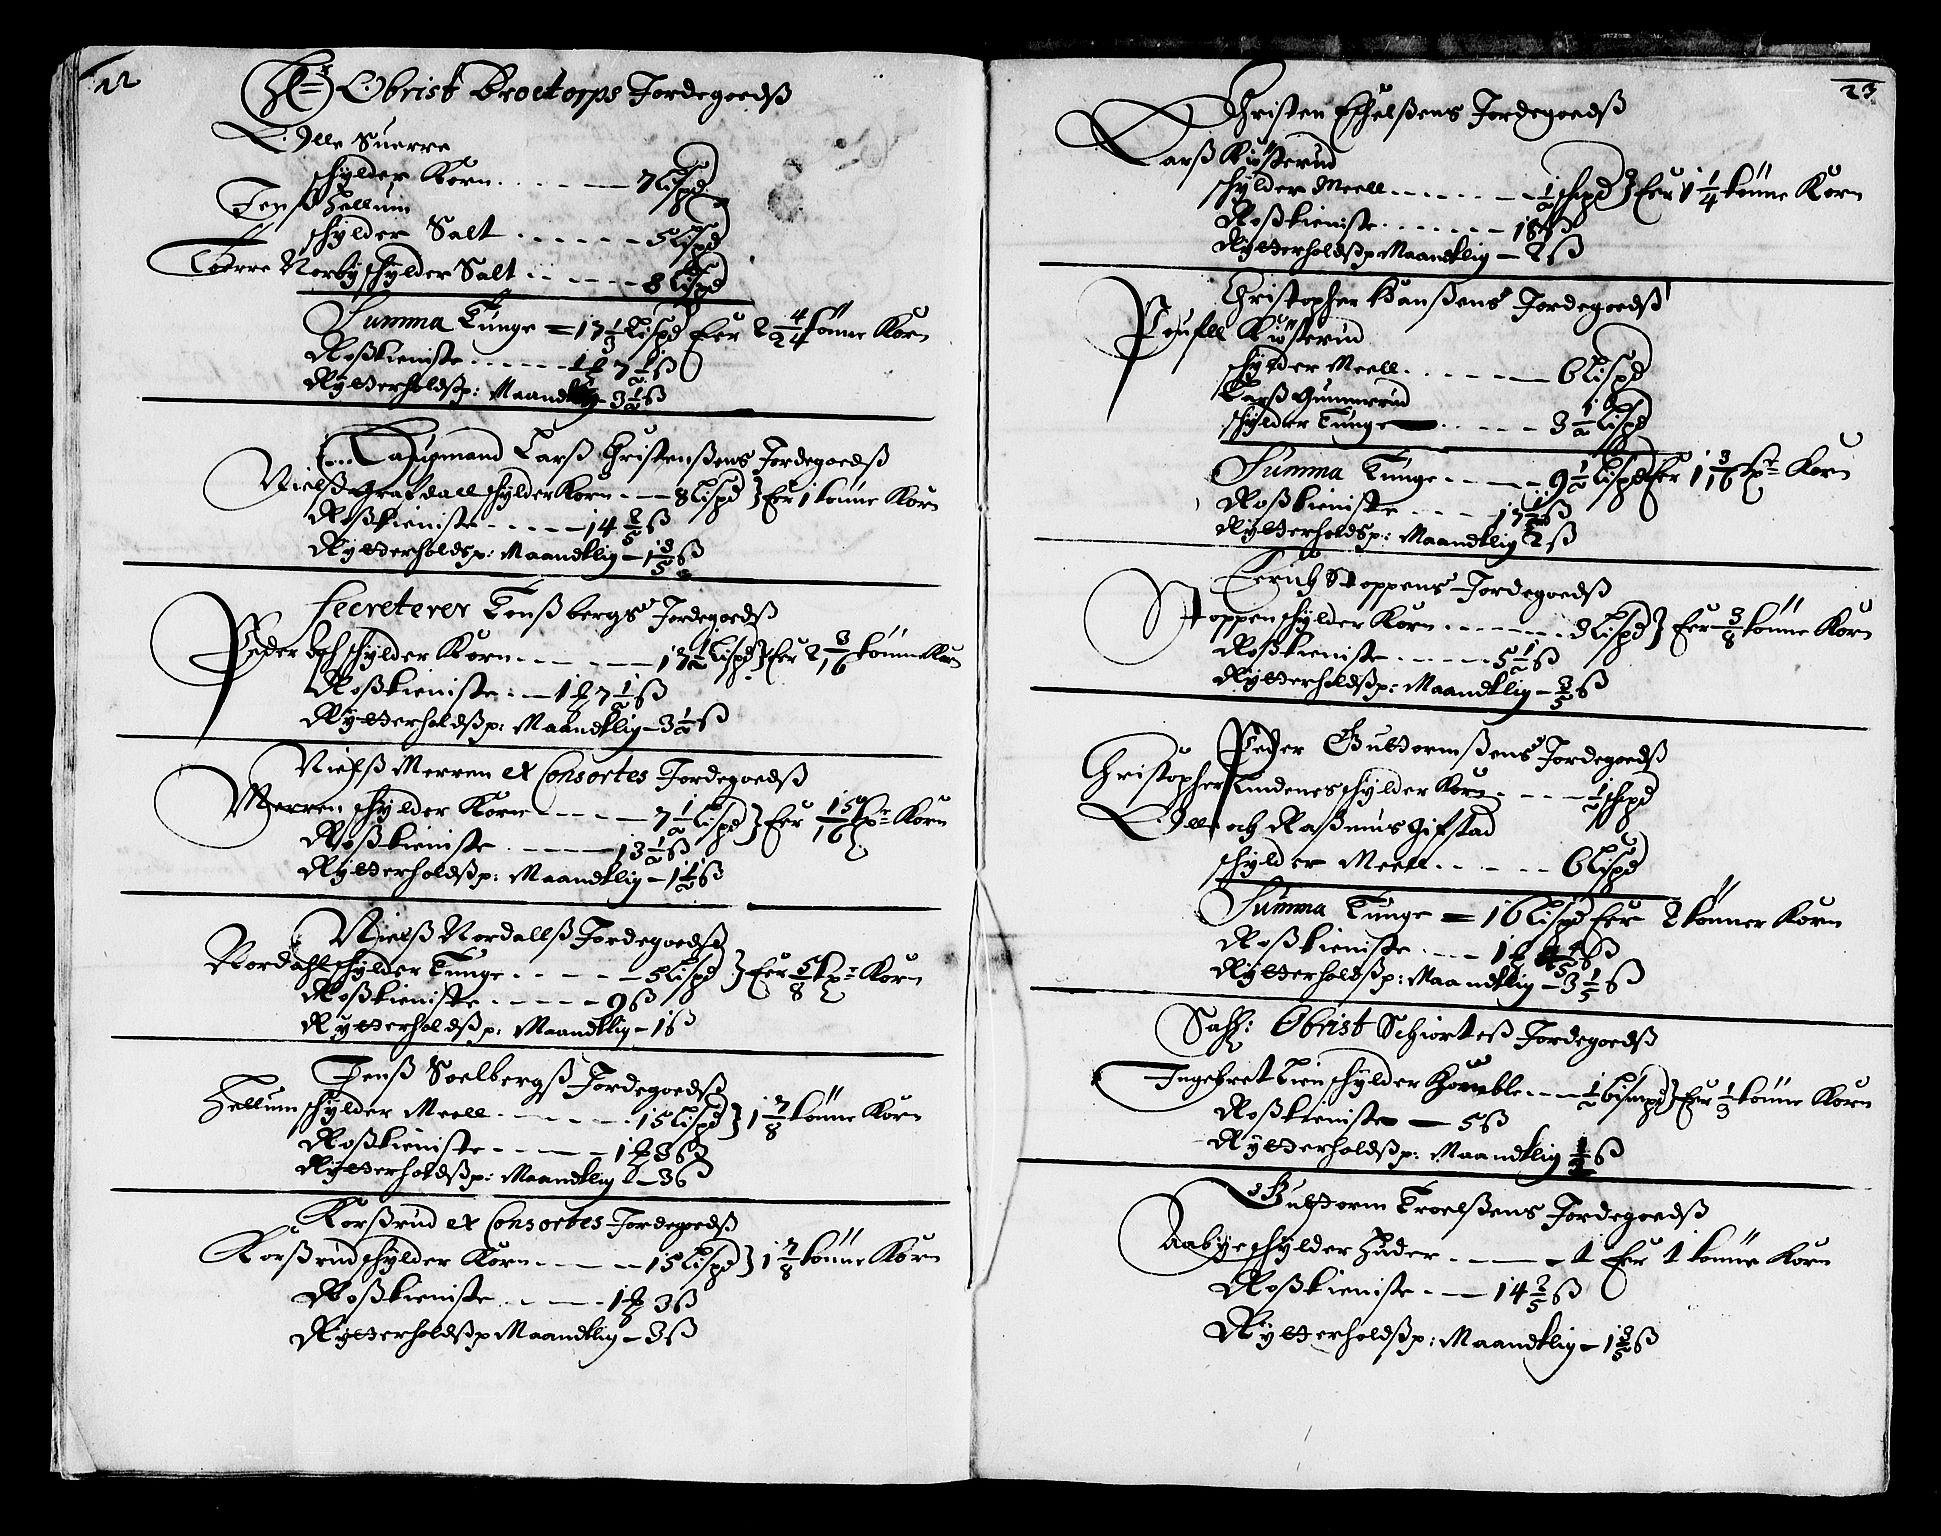 22
Hr: Obrist Brockorps Jordegoedß
Lille Suerre
schylder Korn - - - 7 Lispd
Jens Hellum
schylder Salt - - - 5 Lispd
Torre Norby schylder Salt - - - 8 Lispd
Summa Tunge = 17 1/3 Lispd Eer 2 4/24 tönne Korn
Roßtieniste - - - 1 R 7 1/2 ß
Rytterholdßp: Maandtlig - 3 1/2 ß
Laugmand Larß Christenßens Jordegoedß
Nielß Grafdall schylder Korn - - 8 Lispd } Eer 1 tönne Korn
Roßtieniste - - - 14 2/5 ß
Rytterholdsp: Maandtlig - 1 3/5 ß
Secreterer Tonßbergs Jordegoedß
Peder schylder Korn - - - 17 1/2 Lispd } Eer 2 3/16 tönne Korn
Roßtieniste - - 1 R 7 1/2 ß
Rytterholdßp: Maandtlig - 3 1/2 ß
Nielß Merren et Consortes Jordegoedß
Merren schylder Korn - - - 7 1/2 Lispd } Eer 15/16 tr Korn
Roßtieniste - - - 13 1/2 ß
Rytterholdßp: Maandtlig - 1 1/2 ß
Nielß Nordallß Jordegoedß
Nordahl schylder Tunge - - - 5 Lispd } Eer 5/8 tr Korn
Roßtieniste - - - 9 ß
Rytterholdßp: Maandtlig - 1 ß
Jenß Soelbergß Jordegoedß
Hellum schylder Meell - - - 15 Lispd } 1 7/8 tönne Korn
Roßtieniste - - - 1 R 3 ß
Rytterholdßp: Maandtlig - 3 ß
Korßrud et Consortes Jordegoedß
Korßrud schylder Korn - - - 15 Lispd } 1 7/8 tönne Korn
Roßtieniste - - - 1 R 3 ß
Rytterholdßp Maandtlig - 3 ß
23
Christen Jordegoedß
Larß Kiösterud
schylder Meell - - - 1/2 schpd } Eer 1 1/4 tönne Korn
Roßtieniste - - - 18 ß
Rytterholdßp Maandtlig - 2 ß
Christopher Hanßens Jordegoedß
Poufell Kiösterud
schylder Meell - - - 6 Lispd
Larß Gunnerud
schylder Tunge - - - 3 1/2 Lispd
Summa Tunge - - - 9 1/2 Lispd Eer 1 3/16 tr Korn
Roßtieniste - - - 17 1/2 ß
Rytterholdsp: Maandtlig 2 ß
Erich Stoppens Jordegoedß
Stoppen schylder Korn - - - 3 Lispd } Eer 3/8 tönne Korn
Roßtieniste - - - 5 1/2 ß
Rytterholdßp: Maandtlig - 3/5 ß
Peder Guttormßens Jordegoedß
Christopher Lindenes schylder Korn - - - 1/2 schpd
Lille och Raßmus Gifstad
schylder Meell - - - 6 Lispd
Summa Tunge = 16 Lispd Eer 2 tönner Korn
Roßtieniste - - - 1 R 4/5 ß
Rytterholdßp: Maandtlig - 3 1/5 ß
Sahl: Obrist Schiorteß Jordegoedß
Ingebret Lien schylder Humble - - 1/2 bismpd } Eer 1/3 tönne Korn
Roßtieniste - 5 ß
Rytterholdßp: Maandtlig 1/2 ß
Guttorm Troelßens Jordegoedß
Aabye schylder Huder - - - 1 Eer 1 tönne Korn
Roßtieniste - - 14 2/5 ß
Rytterholdßp: Maandtlig - 1 3/5 ß